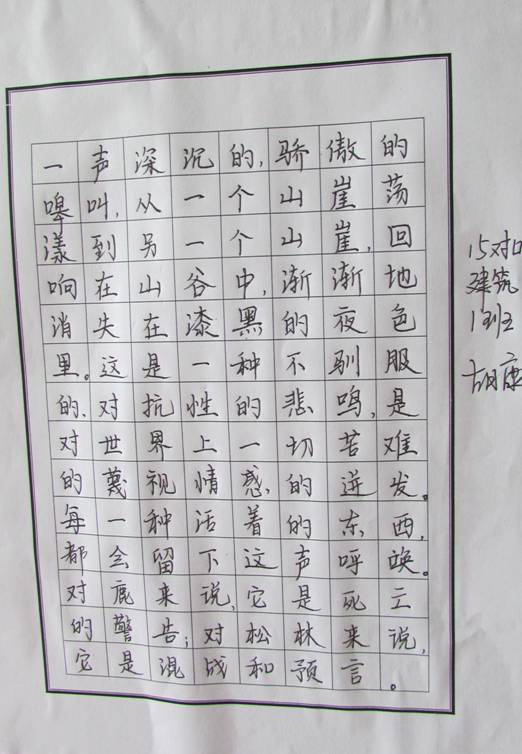 一声深沉的,骄傲的
嗥叫,从一个山崖荡
漾到另一个山崖,回
响在山谷中,渐渐地
消失在漆黑的夜色
里。这是一种不驯服
的、对抗性的悲鸣,是
对世界上一切苦难
的蔑视情感的迸发。
每一种活着的东西,
都会留下这声呼唤。
对鹿来说,它是死亡
的警告;对松林来说,
它是混战和预言。
15对口
建筑
1班
胡康